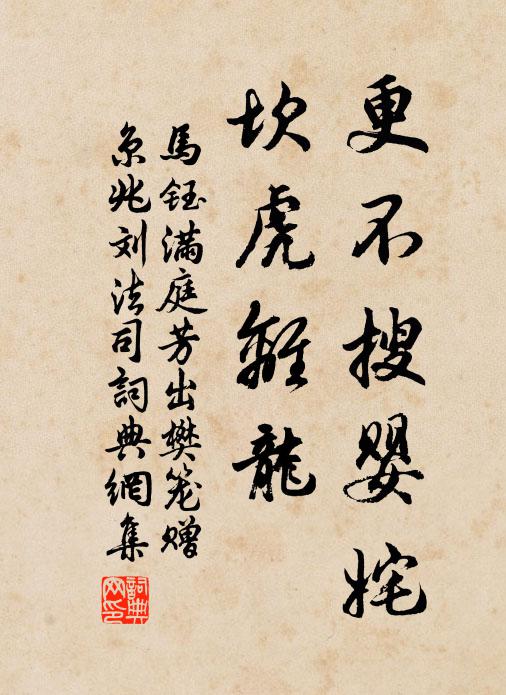 更不搜婴姹
坎虎離龍
馬钰滿庭芳出樊笼赠
京兆刘法司詞典網集
詞典网印